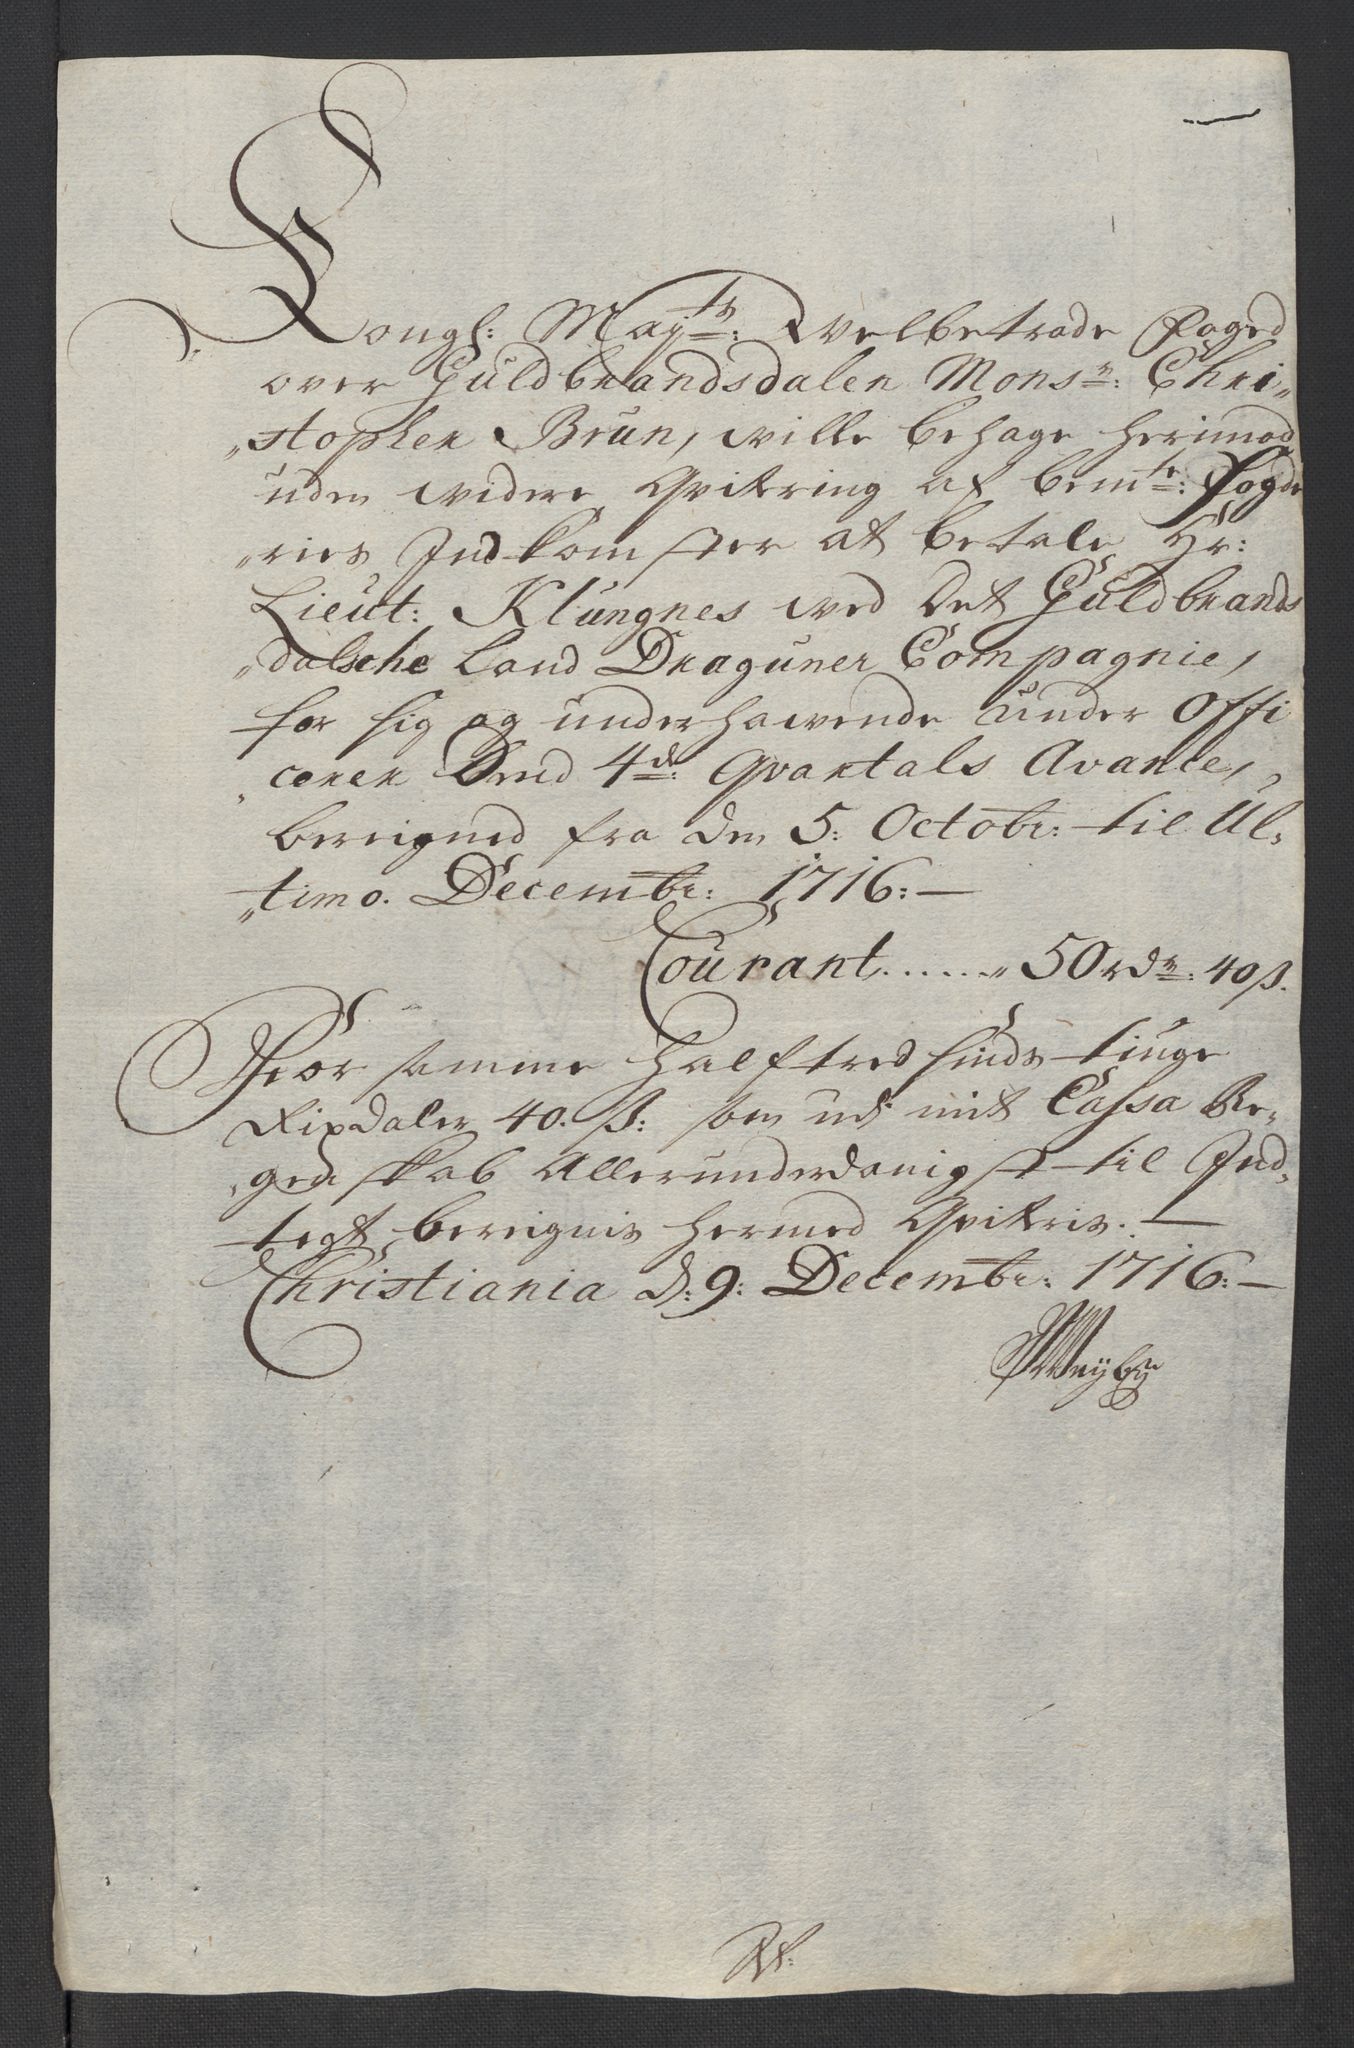 Kongl: Maj:ts: Welbetrode Foged
over Guldbrandsdalen Monsr: Chri„
„stopher Brun, wille behage herimod
uden widere Qvitering af bemte: Fogde
„ries Indkomster at betale Hr:
Lieut: Klüngnes wed Det Guldbrands
„dalsche Land Draguner Compagnie,
for sig og underhawende Under Offi
„cerer Dend 4de: Qvartals Avance,
bereigned fra den 5: Octobr: til Ul„
„timo. Decembr: 1716:—
Courant......„ 50 rdr: 40 ß.
Fror samme halftredsindstiuge
Rixdaler 40. ß: som udi mit Cassa Re„
„genskab Allerunderdanigst til Ind„
tegt bereignis hermed Qviteris.—
Christiania d: 9: Decembr: 1716:—